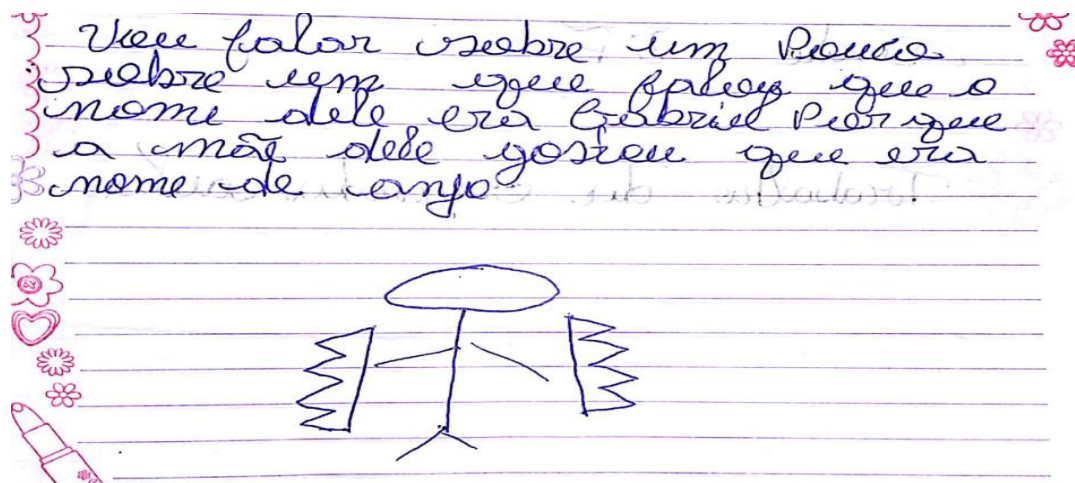 Vou falar sobre um Pouco
sobre um que falou que o
nome dele era Gabriel Porque
a mãe dele gostou que era
nome de anjo